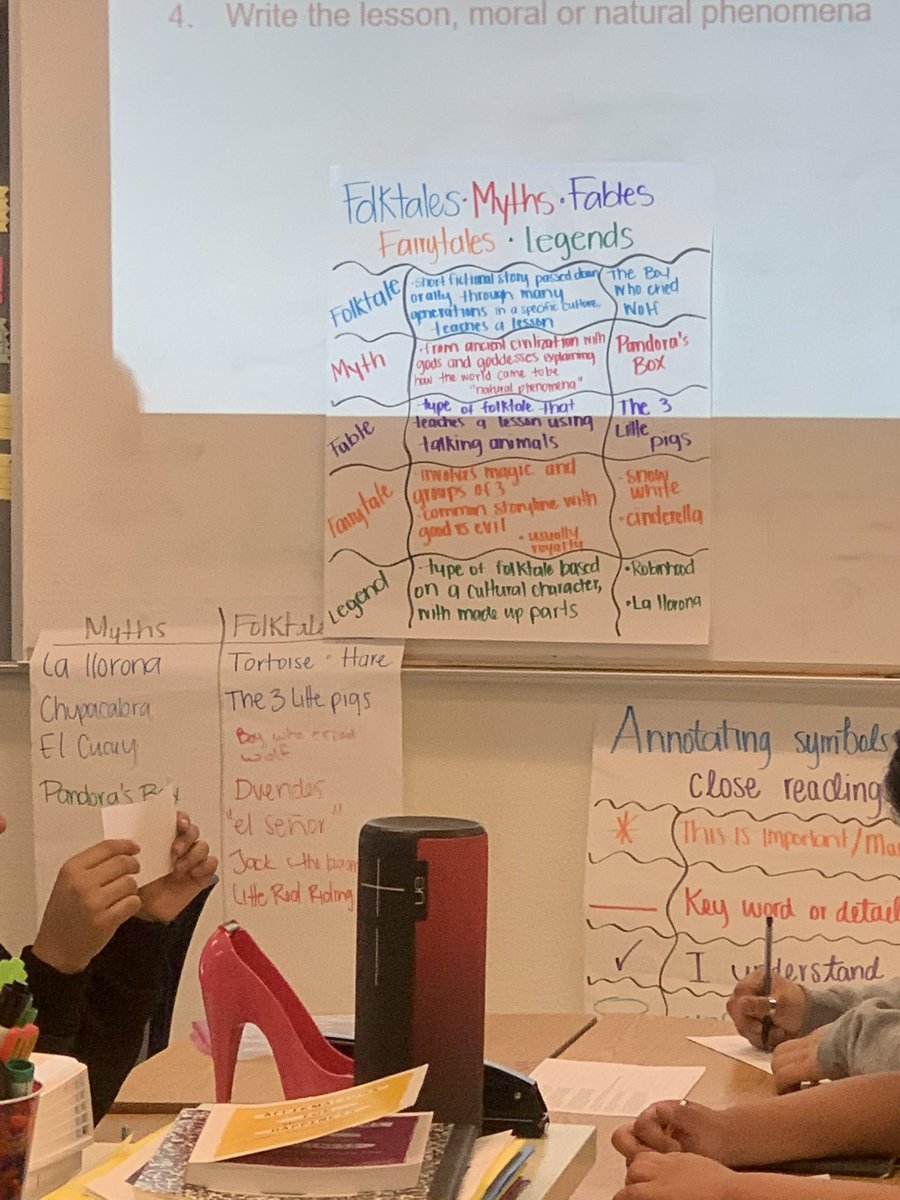 4. Write the lesson, moral or natural phenomena
Folktales · Myths · Fables
Fairytales · Legends
Folktale
·short fictional story passed down
orally through many
generations in a specific culture,
teaches a lesson
The Boy
who cried
Wolf
Myth
·from ancient civilization with
gods and goddesses explaining
how the world came to be
"natural phenomena"
Pandora's
Box
Fable
type of folktale that
teaches a lesson using
talking animals
The 3
Little
pigs
Fairytale
involves magic and
groups of 3
·common storyline with
good vs evil
· usually
royalty
·Snow
white
·cinderella
Legend
·type of folktale based
on a cultural character,
with made up parts
·Robinhood
·La llorona
Myths
La llorona
Chupacabra
El Cucuy
Pandora's
Folktale
Tortoise · Hare
The 3 little pigs
Boy who cried
wolf
Duendes
"el señor"
Jack & the
Little Red Riding
Annotating symbols
close reading
* This is important/
Key word or detail
✓ I understand